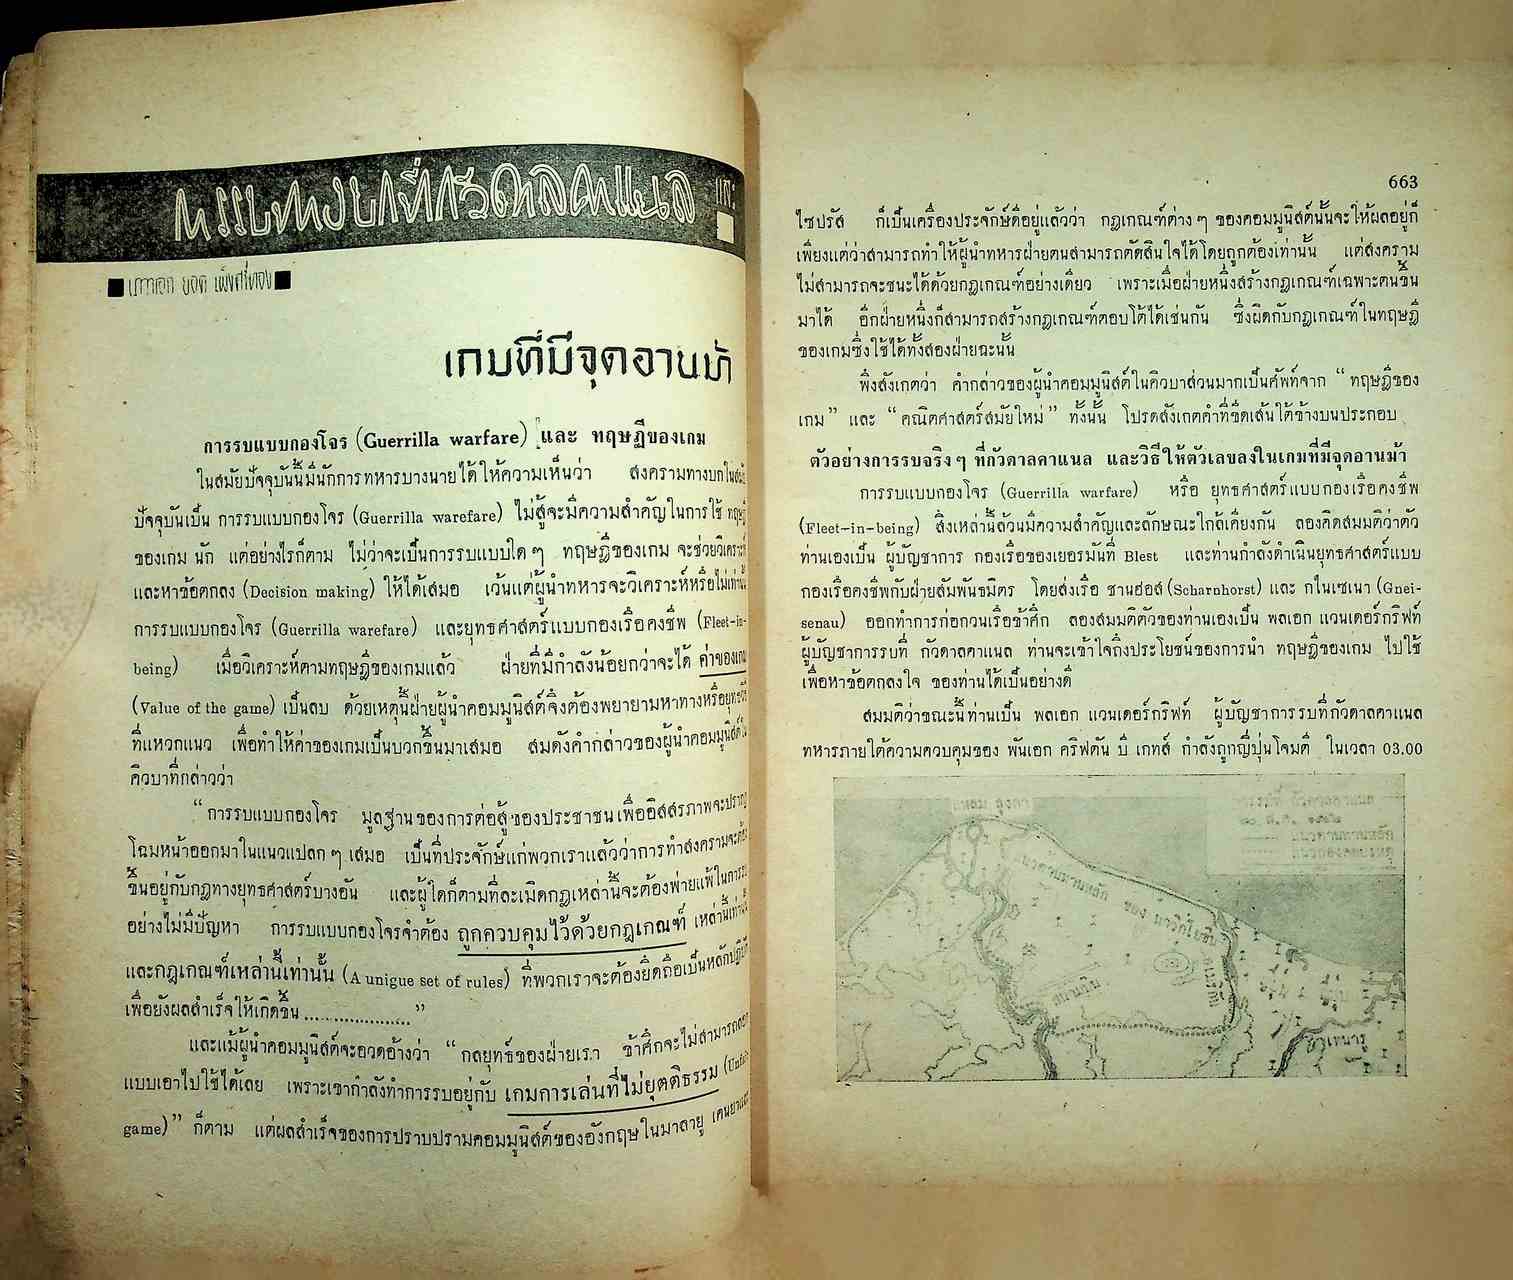 การรบทางบกที่กัวดาลคาแนล และ
■ เรือเอก ยอด เพ็งศรีทอง ■
เกมที่มีจุดอานม้า
การรบแบบกองโจร (Guerrilla warfare) และ ทฤษฎีของเกม
ในสมัยปัจจุบันนี้มีนักการทหารบางนายได้ให้ความเห็นว่า สงครามทางบกในสมัย
ปัจจุบันเป็น การรบแบบกองโจร (Guerrilla warefare) ไม่สู้จะมีความสำคัญในการใช้ ทฤษฎี
ของเกม นัก แต่อย่างไรก็ตาม ไม่ว่าจะเป็นการรบแบบใด ๆ ทฤษฎีของเกม จะช่วยวิเคราะห์
และหาข้อตกลง (Decision making) ให้ได้เสมอ เว้นแต่ผู้นำทหารจะวิเคราะห์หรือไม่เท่านั้น
การรบแบบกองโจร (Guerrilla warefare) และยุทธศาสตร์แบบกองเรือคงชีพ (Fleet-in-
being) เมื่อวิเคราะห์ตามทฤษฎีของเกมแล้ว ฝ่ายที่มีกำลังน้อยกว่าจะได้ ค่าของเกม
(Value of the game) เป็นลบ ด้วยเหตุนี้ฝ่ายผู้นำคอมมูนิสต์จึงต้องพยายามหาทางหรือยุทธวิธี
ที่แหวกแนว เพื่อทำให้ค่าของเกมเป็นบวกขึ้นมาเสมอ สมดังคำกล่าวของผู้นำคอมมูนิสต์ใน
คิวบาที่กล่าวว่า
“การรบแบบกองโจร มูลฐานของการต่อสู้ของประชาชนเพื่ออิสสรภาพจะปรากฏ
โฉมหน้าออกมาในแนวแปลก ๆ เสมอ เป็นที่ประจักษ์แก่พวกเราแล้วว่าการทำสงครามจะต้อง
ขึ้นอยู่กับกฎทางยุทธศาสตร์บางอัน และผู้ใดก็ตามที่ละเมิดกฎเหล่านี้จะต้องพ่ายแพ้ในการรบ
อย่างไม่มีปัญหา การรบแบบกองโจรจำต้อง ถูกควบคุมไว้ด้วยกฎเกณฑ์ เหล่านี้เท่านั้น
และกฎเกณฑ์เหล่านี้เท่านั้น (A unigue set of rules) ที่พวกเราจะต้องยึดถือเป็นหลักปฏิบัติ
เพื่อยังผลสำเร็จให้เกิดขึ้น ..................”
และแม้ผู้นำคอมมูนิสต์จะอวดอ้างว่า “กลยุทธ์ของฝ่ายเรา ข้าศึกจะไม่สามารถลอก
แบบเอาไปใช้ได้เลย เพราะเขากำลังทำการรบอยู่กับ เกมการเล่นที่ไม่ยุตติธรรม (Unfair
game)” ก็ตาม แต่ผลสำเร็จของการปราบปรามคอมมูนิสต์ของอังกฤษในมาลายู เคนยาและ
663
ไซปรัส ก็เป็นเครื่องประจักษ์ดีอยู่แล้วว่า กฎเกณฑ์ต่าง ๆ ของคอมมูนิสต์นั้นจะให้ผลอยู่ก็
เพียงแต่ว่าสามารถทำให้ผู้นำทหารฝ่ายตนสามารถตัดสินใจได้โดยถูกต้องเท่านั้น แต่สงคราม
ไม่สามารถจะชนะได้ด้วยกฎเกณฑ์อย่างเดียว เพราะเมื่อฝ่ายหนึ่งสร้างกฎเกณฑ์เฉพาะตนขึ้น
มาได้ อีกฝ่ายหนึ่งก็สามารถสร้างกฎเกณฑ์ตอบโต้ได้เช่นกัน ซึ่งผิดกับกฎเกณฑ์ในทฤษฎี
ของเกมซึ่งใช้ได้ทั้งสองฝ่ายฉะนั้น
พึงสังเกตว่า คำกล่าวของผู้นำคอมมูนิสต์ในคิวบาส่วนมากเป็นศัพท์จาก “ทฤษฎีของ
เกม” และ “คณิตศาสตร์สมัยใหม่” ทั้งนั้น โปรดสังเกตคำที่ขีดเส้นใต้ข้างบนประกอบ
ตัวอย่างการรบจริง ๆ ที่กัวดาลคาแนล และวิธีให้ตัวเลขลงในเกมที่มีจุดอานม้า
การรบแบบกองโจร (Guerrilla warfare) หรือ ยุทธศาสตร์แบบกองเรือคงชีพ
(Fleet-in-being) สิ่งเหล่านี้ล้วนมีความสำคัญและลักษณะใกล้เคียงกัน ลองคิดสมมติว่าตัว
ท่านเองเป็น ผู้บัญชาการ กองเรือของเยอรมันที่ Blest และท่านกำลังดำเนินยุทธศาสตร์แบบ
กองเรือคงชีพกับฝ่ายสัมพันธมิตร โดยส่งเรือ ชานฮอส (Scharnhorst) และ กไนเซเนา (Gnei-
senau) ออกทำการก่อกวนเรือข้าศึก ลองสมมติตัวของท่านเองเป็น พลเอก แวนเดอร์กริฟท์
ผู้บัญชาการรบที่ กัวดาลคาแนล ท่านจะเข้าใจถึงประโยชน์ของการนำ ทฤษฎีของเกม ไปใช้
เพื่อหาข้อตกลงใจ ของท่านได้เป็นอย่างดี
สมมติว่าขณะนี้ท่านเป็น พลเอก แวนเดอร์กริฟท์ ผู้บัญชาการรบที่กัวดาลคาแนล
ทหารภายใต้ความควบคุมของ พันเอก คริฟตัน บี เกทส์ กำลังถูกญี่ปุ่นโจมตี ในเวลา 03.00
แหลม ลุงกา
แนวต้านทานหลัก
แนวต้านทานหลัก ของ นาวิกโยธิน
สนามบิน
อเมริกัน
ญี่ปุ่น
เทนารู